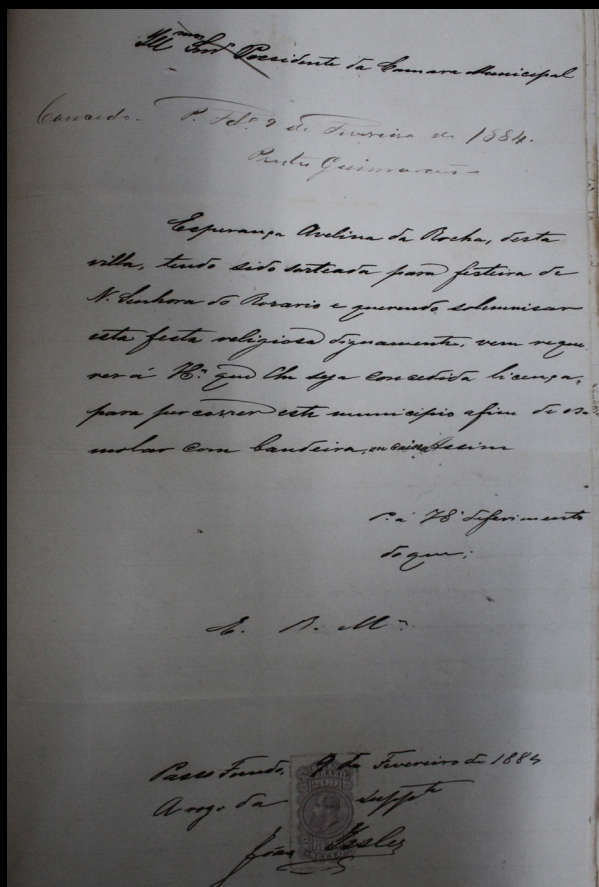 Illmo Snr Presidente da Camara Municipal
Concedo. P. Fdo 9 de Fevereiro de 1884.
Prestes Guimarães
Esperança Avelina da Rocha, desta
villa, tendo sido sorteada para festeira de
N. Senhora do Rosario e querendo solemnisar
esta festa religiosa dignamente, vem reque-
rer á que lhe seja consedida licença,
para percorrer este municipio afim de es-
molar com bandeira, ou caixa Assim
P. a deferimento
do que;
E. R. Mce
Passo Fundo, 9 de Fevereiro de 1884
A rogo da suppte
João Issler